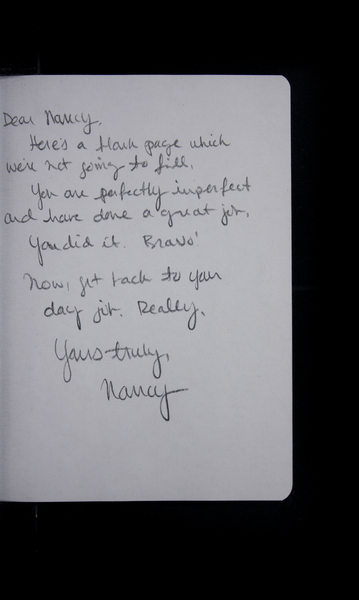 Dear Nancy,
Here's a blank page which
we're not going to fill.
You are perfectly imperfect
and have done a great job.
You did it. Bravo!
Now, get back to your
day job. Really.
Yours truly,
Nancy